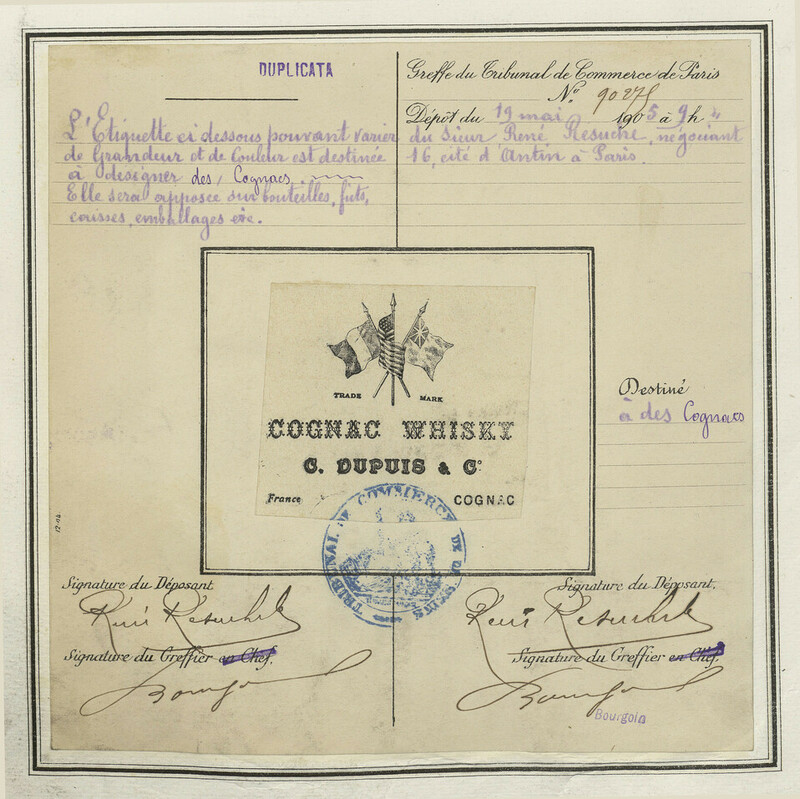 DUPLICATA
L'Etiquette ci dessous pouvant varier
de Grandeur et de Couleur est destinée
à designer des Cognacs.
Elle sera apposée sur bouteilles, fûts,
caisses, emballages etc.
Greffe du Tribunal de Commerce de Paris
N° 90275
Dépôt du 19 mai 1905 à 9 h
du Sieur René Resuche, négociant
16, cité d'Antin à Paris.
TRADE MARK
COGNAC WHISKY
C. DUPUIS & Co
France COGNAC
Destiné
à des Cognacs
TRIBUNAL DE COMMERCE DE LA SEINE
12-04
Signature du Déposant
René Resuche
Signature du Greffier en Chef.
Bourgoin
Signature du Déposant.
René Resuche
Signature du Greffier en Chef.
Bourgoin
Bourgoin